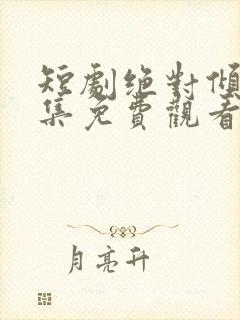 短劇绝對傾
集免費觀看
月亮升